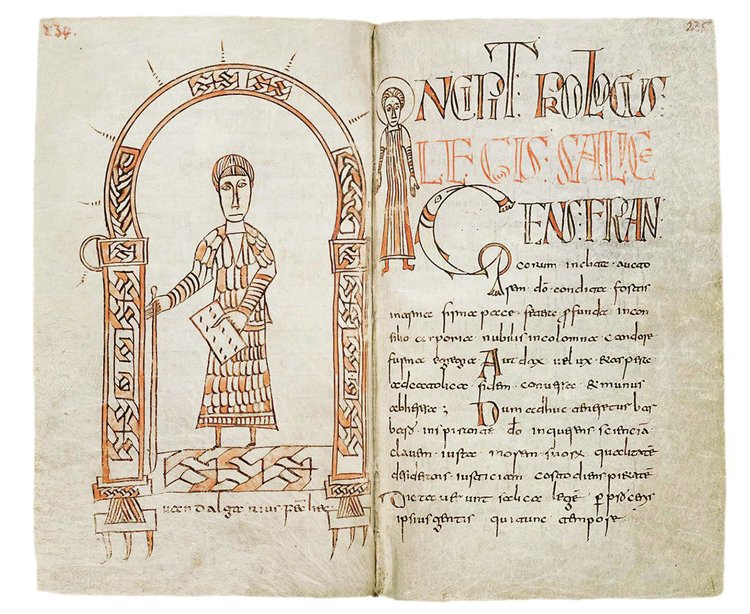 234.
uuandalgarius fec hec
235
INCIPIT PROLOGUS:
LEGIS: SALICE
GENS: FRAN
corum · inclita · aucto
rem · do · condita · fortis
in arma · firma pace · fetere · profunda in con
silio corporia · nubilis · incolomna · candore
forma · egregia · Audax · velux · et aspera
ad catholica · fidem · conversa · & munis
ab herese ; Dum adhuc · teneretur bar
baro inspirante · do inquerens sciencia
clavem · iusta morem suorum qualitate
desiderans · iusticiam costodiens pietate
Dictaverunt salica lege per proceris
ipsius gentis qui tunc tempore